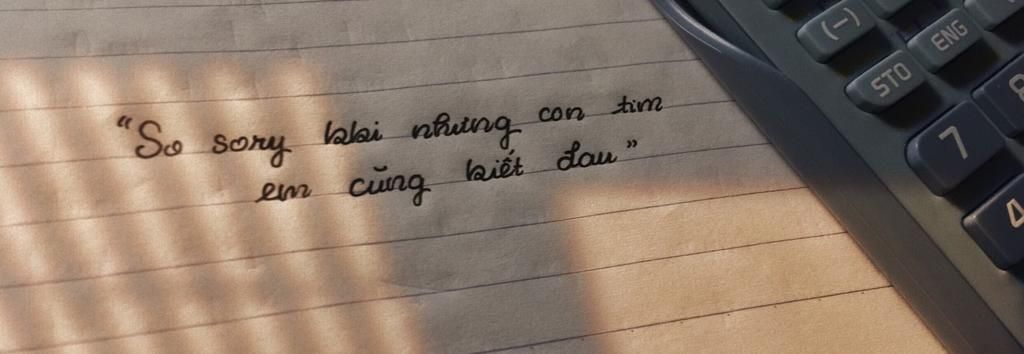 “So sory bbi nhưng con tim
em cũng biết đau”
(-) ENG
STO
7 8
4